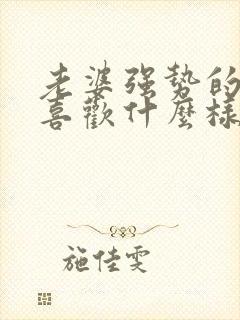 老婆強勢的
喜歡什麼樣
施佳雯